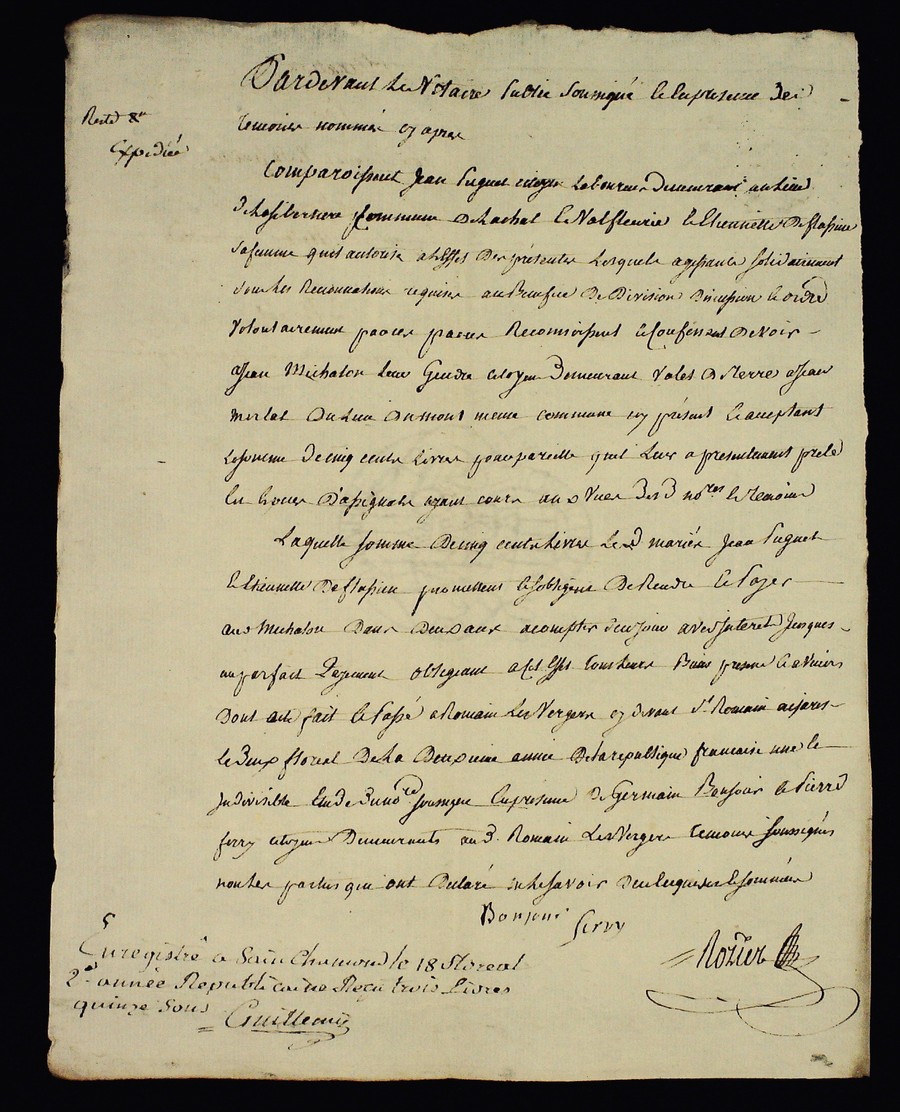 Pardevant Les Notaires Public Soussigné Et En presence Des
Reste 8.n
Expediéé
temoins nommés cy apres
Comparoissent Jean Puguet citoyen Laboureur Demeurant au Lieu
Commune De Lachal Le Valfleurie Et Etiennette Deflassieu
Sa femme qu'il autorise a L'effet Des présentes Lesquels agissants Solidairement
Sous Les Renonciations requises au Benefice De Division Discussion Et ordre
Volontairement Reconnoissent Et Confessent Devoir
a Jean Michalon Leur Gendre citoyen Demeurant Valet De Pierre a Jean
Merlat Du Lieu Dumont meme commune cy présent Et acceptant
La Somme De cinq cents Livres pour pareille qu'il Leur a presentement preté
En Bons D'assignats ayant cours au Vues Des D. nores. Et temoins
Laquelle Somme De cinq cents Livres Les d mariés Jean Puguet
Et Etiennette Deflassieu promettent Et S'obligent De Rendre Et Payer
aud Michalon Dans Deux ans a compter De ce jour avec Interet Jusques
au parfait Payement obligeant a Cet effet tous Leurs Biens presens Et avenirs
Dont acte fait Et Passé a Romain Les Vergers cy devant St. Romain en jarest
Le Deux floreal De La Deuxieme année De la republique francaise une Et
Indivisible Soussigné En presence De Germain Bonjour Et Pierre
ferry citoyens Demeurants au d. Romain Les Vergers temoins Soussignés
non Les parties qui ont Declaré ne Le Savoir De ce Enquises Et Sommées
Bonjour
ferry
Rozier
Enregistré a Sain Chamond le 18 floreal
2.e année Republicaine Reçu trois Livres
quinze Sous
Guilleaume